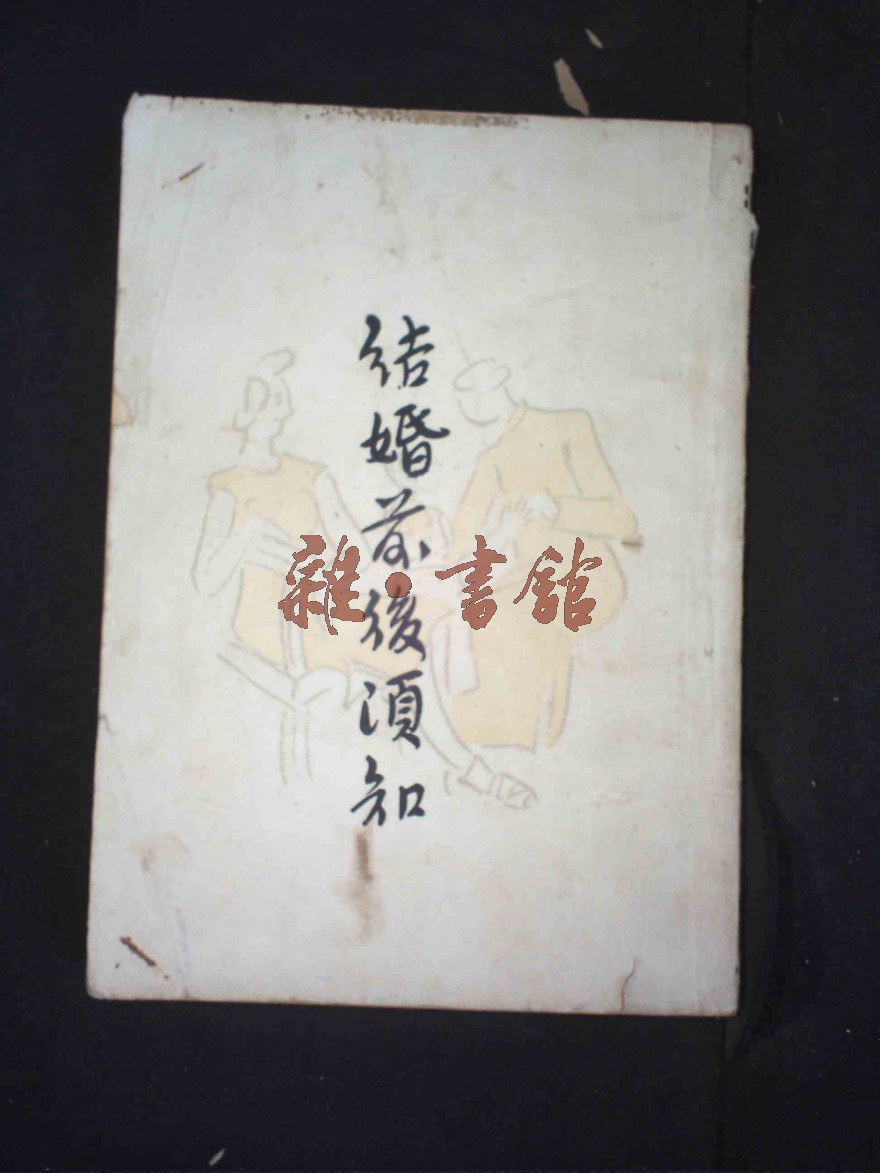 結婚前後須知
雜·書館